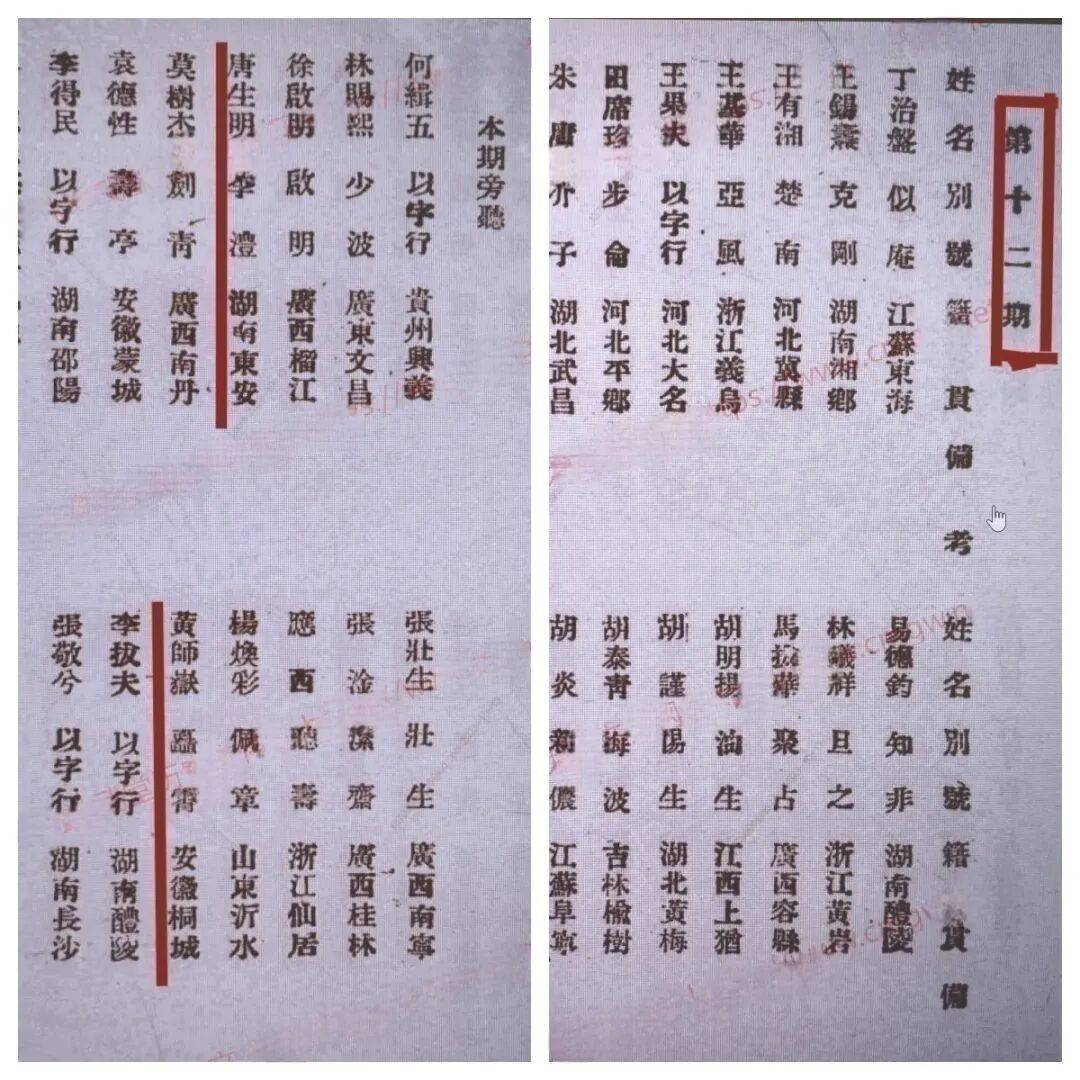 本期旁聽
何緝五 以字行 貴州興義
林賜熙 少波 廣東文昌
徐啟明 啟明 廣西榴江
唐生明 季澧 湖南東安
莫樹杰 劍青 廣西南丹
袁德性 壽亭 安徽蒙城
李得民 以字行 湖南邵陽
張壯生 壯生 廣西南寧
張淦 潔齋 廣西桂林
應西 聽壽 浙江仙居
楊煥彩 佩章 山東沂水
黃師嶽 安徽桐城
李拔夫 以字行 湖南醴陵
張敬兮 以字行 湖南長沙
第十二期
姓名 別號 籍貫 備考
丁治盤 似庵 江蘇東海
王錫燾 克剛 湖南湘鄉
王有湘 楚南 河北冀縣
王基華 亞風 浙江義烏
王果夫 以字行 河北大名
田席珍 步倫 河北平鄉
朱庸 介子 湖北武昌
姓名 別號 籍貫 備
易德鈞 知非 湖南醴陵
林曦祥 旦之 浙江黃岩
馬拔華 聚占 廣西容縣
胡明揚 油生 江西上猶
胡謹 陽生 湖北黃梅
胡泰青 海波 吉林榆樹
胡炎 新儂 江蘇阜寧